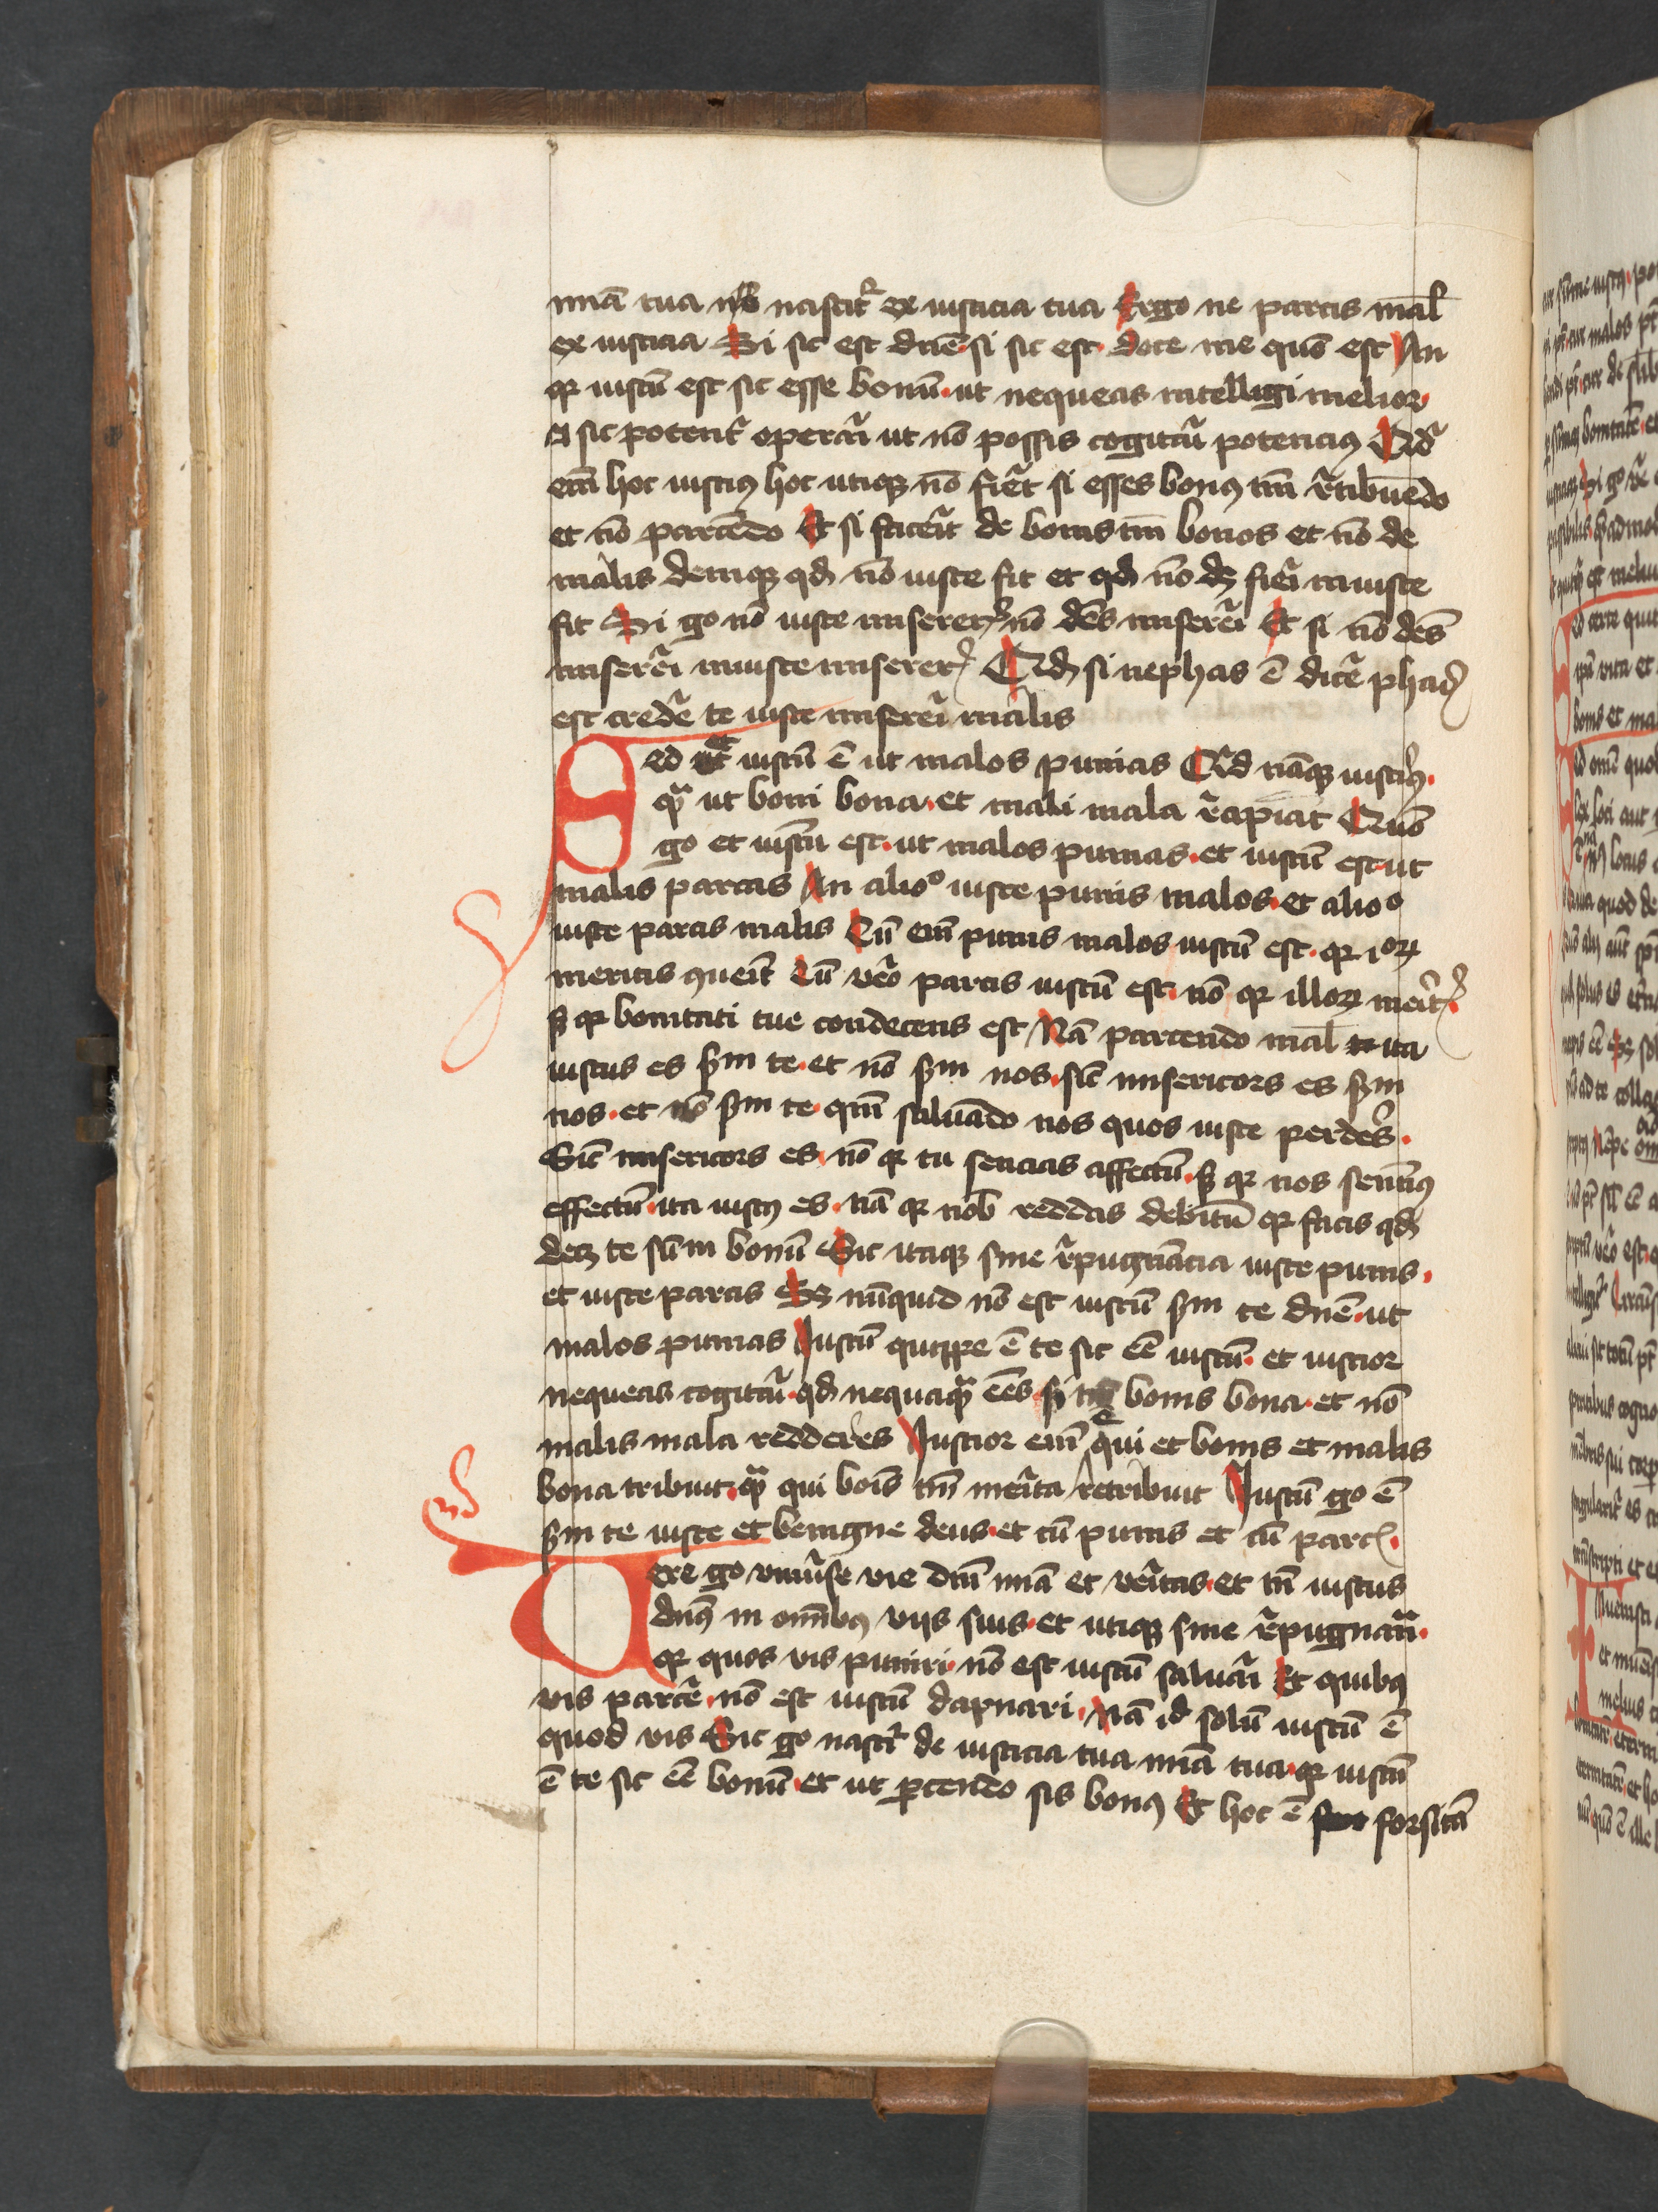 mīa tua nō nascit᷑ ex iusticia tua Ergo ne parcis mal̄
ex iusticia Si sic est dn̄e si sic est doce me quō est An
qꝛ iustū est sic esse bonū ut nequeas intelligi melior
et sic potent᷑ operari ut nō possis cogitari potencius Qid
em̄ hoc iustiꝰ hoc utiqꝫ nō fieret si esses bonꝰ tm̄ retribuēdo
et nō parcēdo Et si faceres de bonis tm̄ bonos et nō de
malis deniqꝫ qd nō iuste fit et qd nō dꝫ fieri iniuste
fit Si gͦ nō iuste misereris nō debes misereri Et si nō debes
misereri iniuste misereris Qd si nephas ē dicere phas
est credere te iuste misereri malis
Sed et iustū ē ut malos punias Qid nāqꝫ iustiꝰ
qᷓ ut boni bona et mali mala recipiāt Quō
gͦ et iustū est ut malos punias et iustū est ut
malis parcas An alioͦ iuste punis malos et alioͦ
iuste parcis malis Cū em̄ punis malos iustū est qꝛ eoꝝ
meritis ꝯuenit Cū vero parcis iustū est nō qꝛ illoꝝ meritis
sꝫ qꝛ bonitati tue condecens est Nā parcendo mal̄ ita
iustus es sm̄ te et nō sm̄ nos sicut misericors es sm̄
nos et nō sm̄ te qm̄ saluādo nos quos iuste perderes
Sic misericors es nō qꝛ tu sencias affectū sꝫ qꝛ nos sentimꝰ
effectū ita iustꝰ es nō qꝛ nob̄ reddas debitū qꝛ facis qd
decet te sūm bonū Sic itaqꝫ sine repugnācia iuste punis
et iuste parcis Sꝫ nūquid nō est iustū sm̄ te dn̄e ut
malos punias Iustū quippe ē te sic eē iustū et iustior
nequeas cogitari qd nequaqᷓ eēs si bonis bona et nō
malis mala redderes Iustior em̄ ē qui et bonis et malis
bona tribuit qᷓ qui bonis tm̄ merita retribuit Iustū gͦ ē
sm̄ te iuste et benigne deus et cū punis et cū parcis
Vere gͦ vniuerse vie dn̄i mīa et veritas et tn̄ iustus
dn̄s in om̄ibꝰ viis suis et utiqꝫ sine repugnancia
qꝛ quos vis puniri nō est iustū saluari Et quibꝰ
vis parcere nō est iustū dapnari Nā id solū iustū ē
quod vis Sic gͦ nascit᷑ de iusticia tua mīa tua qꝛ iustū
ē te sic eē bonū et ut parcendo sis bonꝰ Et hoc ē forsitā